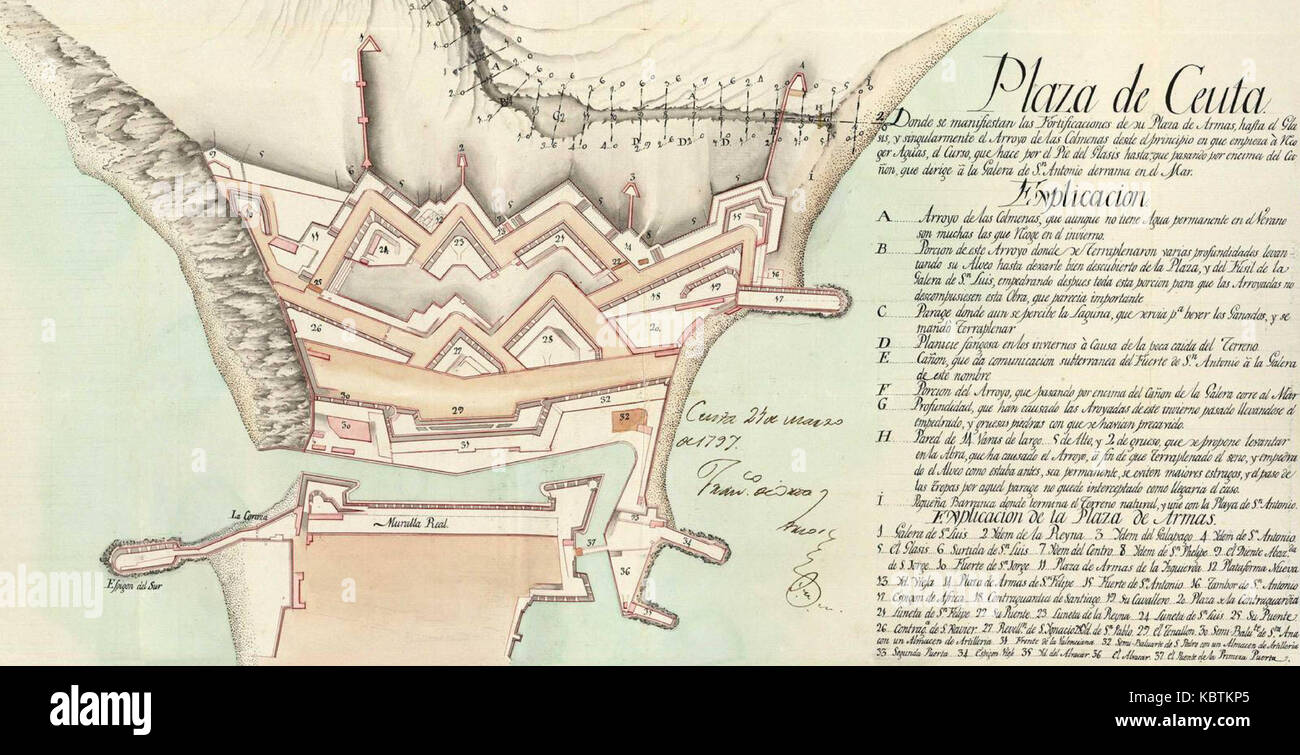 Plaza de Ceuta
Donde se manifiestan las Fortificaciones de su Plaza de Armas, hasta el Gla-
sis, y singularmente el Arroyo de las Colmenas desde el principio en que empieza à reco-
ger Aguas, el Curso, que hace por el Pie del Glasis hasta que pasando por encima del Ca-
ñon, que dirige à la Galera de Sn. Antonio derrama en el Mar.
Explicacion
A Arroyo de las Colmenas, que aunque no tiene Agua permanente en el Verano
son muchas las que recoge en el invierno.
B Porcion de este Arroyo donde se Terraplenaron varias profundidades levan-
tando su Alveo hasta dexarle bien descubierto de la Plaza, y del Fusil de la
Galera de Sn. Luis, empedrando despues toda esta porcion para que las Arroyadas no
descompusiesen esta Obra, que parecia importante
C Parage donde aun se percibe la Laguna, que servia pa. bever los Ganados, y se
mandò Terraplenar
D Planicie fangosa en los inviernos à Causa de la poca caida del Terreno.
E Cañon, que da comunicacion subterranea del Fuerte de Sn. Antonio à la Galera
de este nombre
F Porcion del Arroyo, que pasando por encima del Cañon de la Galera corre al Mar
G Profundidad, que han causado las Arroyadas de este invierno pasado llevandose el
empedrado, y gruesas piedras con que se havian precavido.
H Pared de 14 Varas de largo 5 de Alto, y 2 de grueso, que se propone levantar
en la Abra, que ha causado el Arroyo, à fin de que Terraplenado el seno, y empedra-
do el Alveo como estaba antes, sea permanente, se eviten maiores estragos, y el paso de
las Tropas por aquel parage no quede interceptado como llegaria el caso.
I Pequeña Barranca donde termina el Terreno natural, y une con la Playa de Sn. Antonio.
Explicacion de la Plaza de Armas.
1 Galera de Sn. Luis 2 Ydem de la Reyna 3 Ydem del Galapago 4 Ydem de Sn. Antonio
5 El Glasis 6 Surtida de Sn. Luis 7 Ydem del Centro 8 Ydem de Sn. Phelipe 9 El Diente
de Sn. Jorge 10 Fuerte de Sn. Jorge 11 Plaza de Armas de la Izquierda 12 Plataforma Nueva
13 Vigia 14 Plaza de Armas de Sn. Felipe 15 Fuerte de Sn. Antonio 16 Tambor de Sn. Antonio
17 Espigon de Africa 18 Contraguardia de Santiago 19 Su Cavallero 20 Plaza de la Contraguardia
21 Luneta de Sn. Felipe 22 Su Puente 23 Luneta de la Reyna 24 Luneta de Sn. Luis 25 Su Puente
26 Contrag. de Sn. Xavier 27 Revelln. de Sn. Ignacio de Sn. Pablo 29 El Tenallon 30 Semi-Balte. de Sta. Ana
con un Almacen de Artilleria 31 Frente de la Valenciana 32 Semi-Baluarte de Sn. Pedro con un Almacen de Artilleria
33 Segunda Puerta 34 Espigon 35 Yd. del Albacar 36 El Albacar 37 El Puente de la Primera Puerta
Ceuta 24 de marzo
de 1797.
Franco.
La Corona
Muralla Real
Espigon del Sur
alamy
Image ID: KBTKP5
www.alamy.com